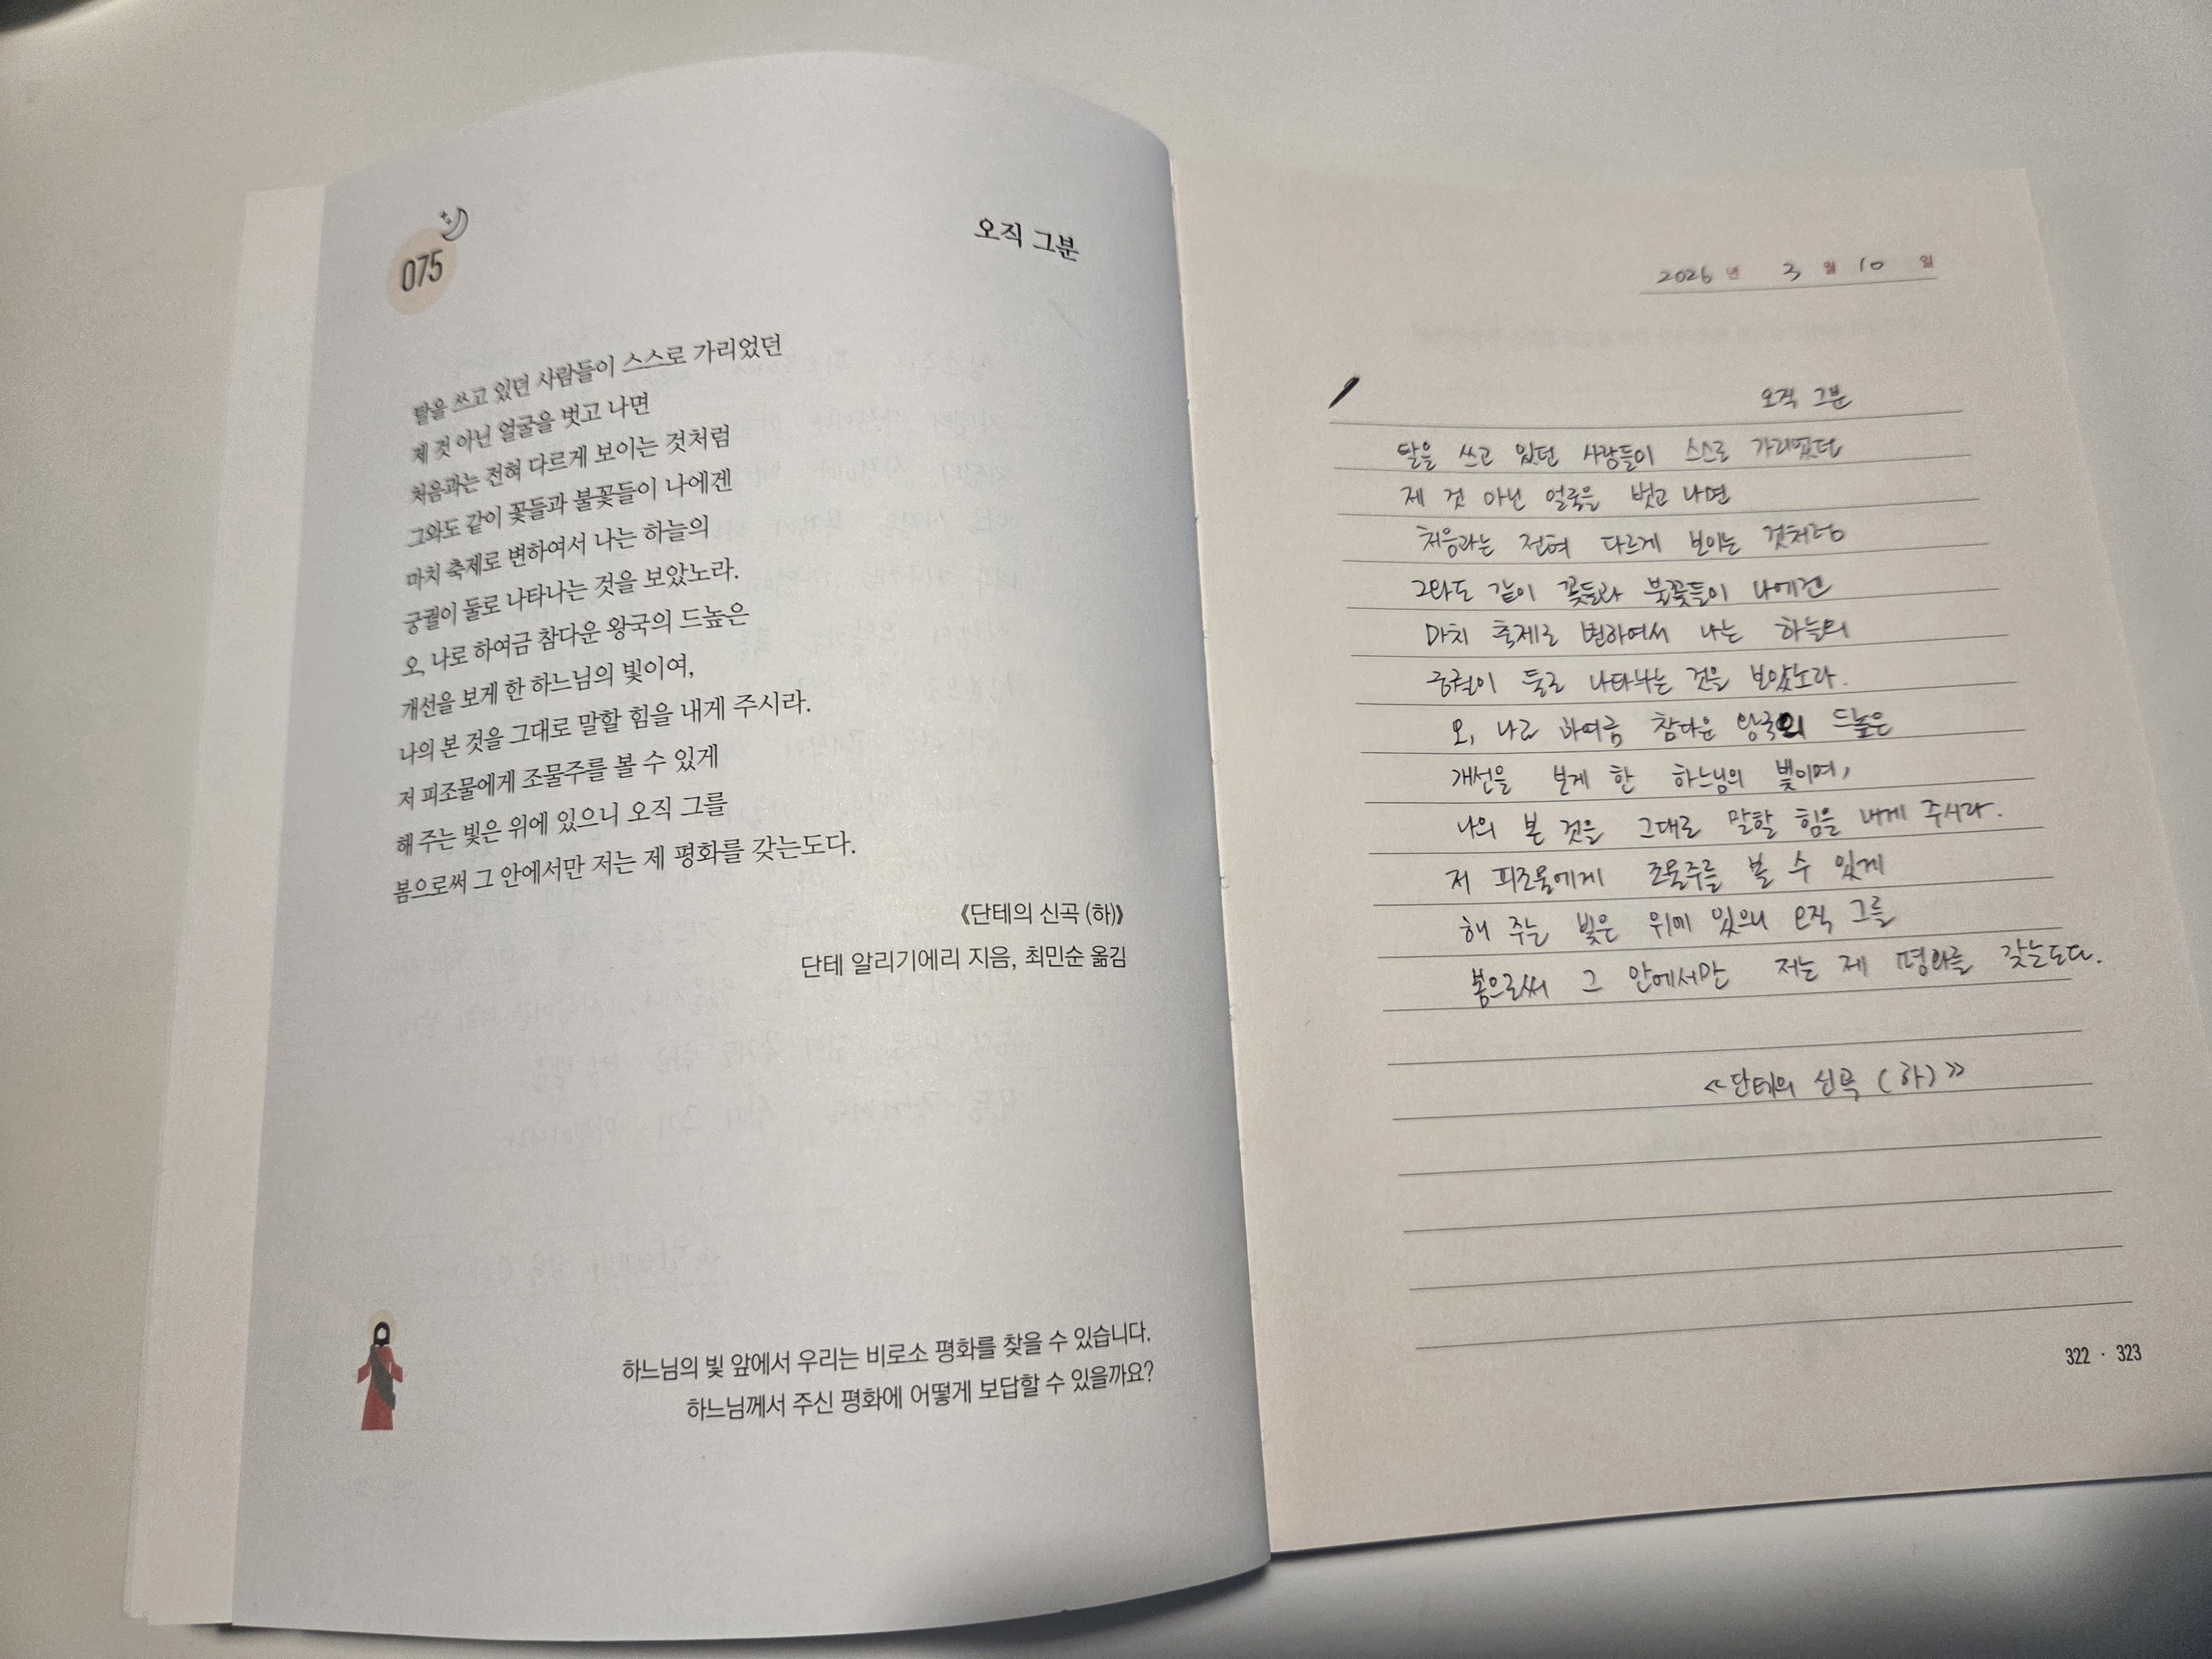 075
오직 그분
탈을 쓰고 있던 사람들이 스스로 가리었던
제 것 아닌 얼굴을 벗고 나면
처음과는 전혀 다르게 보이는 것처럼
그와도 같이 꽃들과 불꽃들이 나에겐
마치 축제로 변하여서 나는 하늘의
궁궐이 둘로 나타나는 것을 보았노라.
오, 나로 하여금 참다운 왕국의 드높은
개선을 보게 한 하느님의 빛이여,
나의 본 것을 그대로 말할 힘을 내게 주시라.
저 피조물에게 조물주를 볼 수 있게
해 주는 빛은 위에 있으니 오직 그를
봄으로써 그 안에서만 저는 제 평화를 갖는도다.
《단테의 신곡 (하)》
단테 알리기에리 지음, 최민순 옮김
하느님의 빛 앞에서 우리는 비로소 평화를 찾을 수 있습니다.
하느님께서 주신 평화에 어떻게 보답할 수 있을까요?
2026 년 3 월 10 일
오직 그분
탈을 쓰고 있던 사람들이 스스로 가리었던
제 것 아닌 얼굴을 벗고 나면
처음과는 전혀 다르게 보이는 것처럼
그와도 같이 꽃들과 불꽃들이 나에겐
마치 축제로 변하여서 나는 하늘의
궁궐이 둘로 나타나는 것을 보았노라.
오, 나로 하여금 참다운 왕국의 드높은
개선을 보게 한 하느님의 빛이여,
나의 본 것을 그대로 말할 힘을 내게 주시라.
저 피조물에게 조물주를 볼 수 있게
해 주는 빛은 위에 있으니 오직 그를
봄으로써 그 안에서만 저는 제 평화를 갖는도다.
<<단테의 신곡 (하)>>
322 · 323